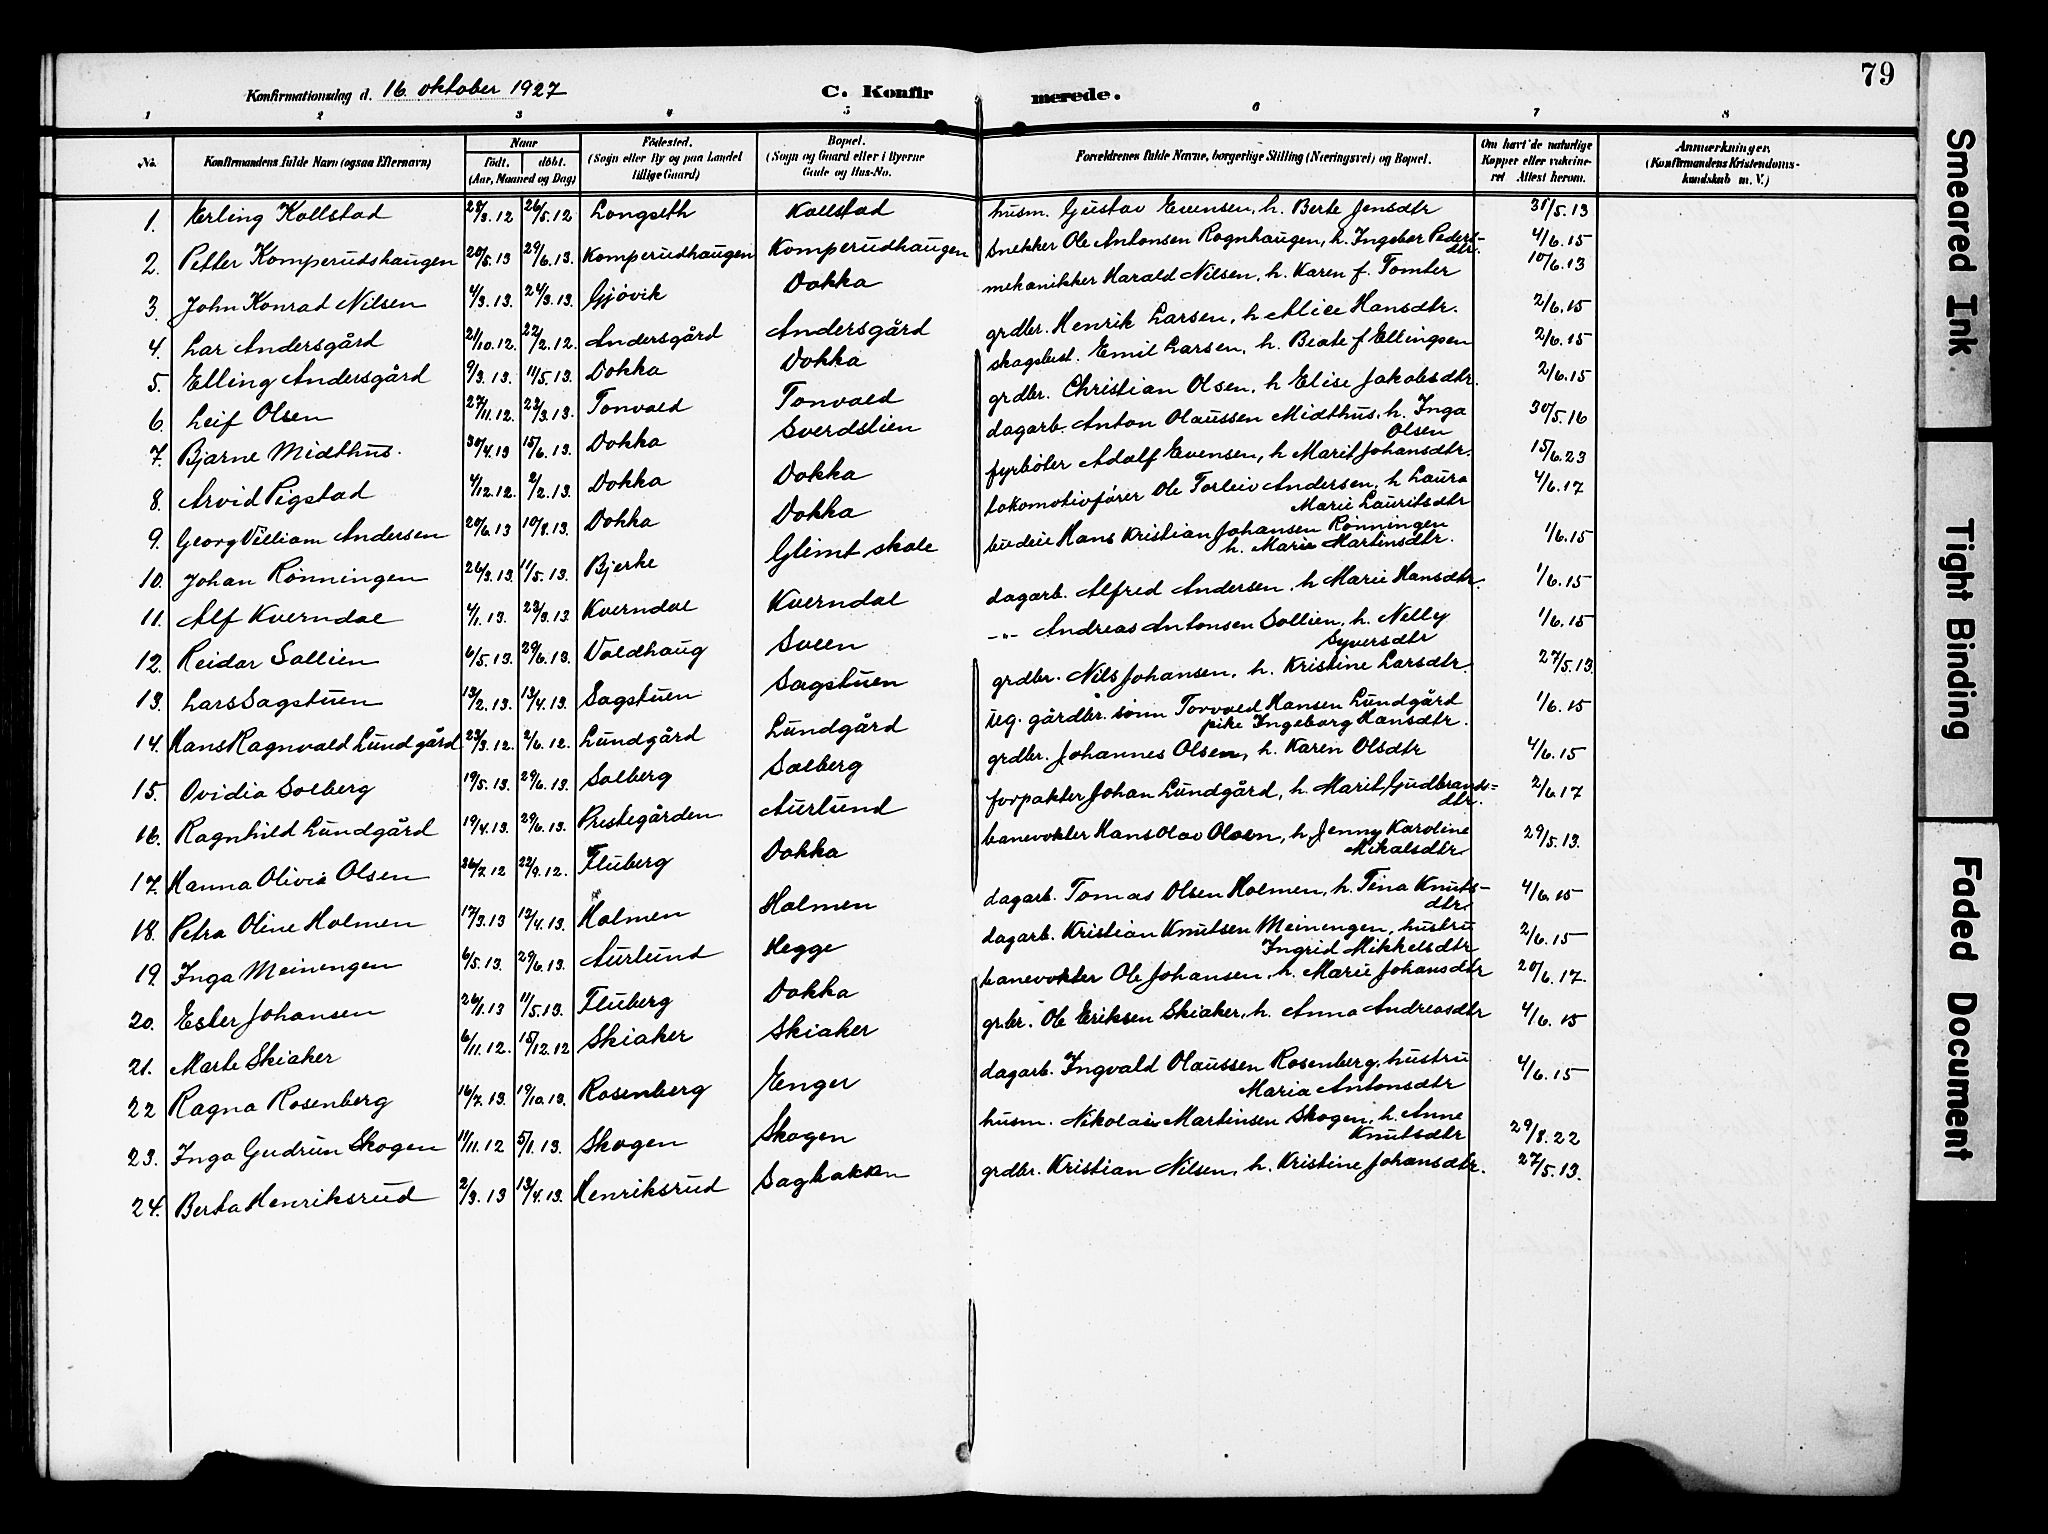 79
Konfirmationsdag d. 16. oktober 1927 C. Konfirmerede.
1 2 3 4 5 6 7 8
No. Konfirmandens fulde Navn (ogsaa Efternavn) Naar født. døbt. (Aar, Maaned og Dag) Fødested. (Sogn eller By og paa Landet tillige Gaard) Bopæl. (Sogn og Gaard eller i Byerne Gade og Hus-No. Forældrenes fulde Navne, borgerlige Stilling (Næringsvei) og Bopæl. Om havt de naturlige Kopper eller vakcineret Attest herom. Anmærkninger. (Konfirmandens Kristendomskundskab m. V.)
1. Erling Kollstad 28/3.12 26/5.12 Longseth Kollstad husm. Gustav Evensen, h. Berte Jensdtr 31/5.13
2. Petter Komperudshaugen 20/5.13 29/6.13. Komperudhaugen Komperudhaugen snekker Ole Antonsen Rognhaugen, h. Ingebor Peders-
dtr. 4/6.15
3. John Konrad Nilsen 4/3.13. 24/3.13. Gjøvik Dokka mekanikker Harald Nilsen, h. Karen f. Tomter 10/6.13
4. Lar Andersgård 2/10.12. 22/2.12. Andersgård Andersgård grdbr. Henrik Larsen, h Alice Hansdtr. 2/6.15
5. Elling Andersgård 9/3.13. 11/5.13. Dokka Dokka skogsbest. Emil Larsen, h. Beate f Ellingsen 2/6.15
6. Leif Olsen 27/11.12. 22/3.13. Tonvold Tonvold grdbr. Christian Olsen, h Elise Jakobsdtr. 2/6.15
7. Bjarne Midthus. 30/4.13 15/6.13. Dokka Sverdslien dagarb. Anton Olaussen Midthus, h. Inga
Olsen 30/5.16
8. Arvid Pigstad 4/12.12. 2/2.13. Dokka Dokka fyrbøter Adolf Evensen, h Marit Johansdtr. 15/6.23
9. Georg Villiam Andersen 20/6.13 10/8.13. Dokka Dokka lokomotivfører Ole Torleiv Andersen, h Laura
Marie Lauritsdtr 4/6.17
10. Johan Rønningen 26/3.13. 11/5.13. Bjerke Glimt skole Hans Kristian Johansen Rønningen
h. Marie Martinsdtr. 1/6.15
11. Alf Kverndal 4/1.13. 23/3.13 Kverndal Kverndal dagarb. Alfred Andersen, h Marie Hansdtr. 1/6.15
12. Reidar Sollien 6/5.13. 29/6.13. Voldhaug Sveen -"- Andreas Antonsen Sollien, h. Nelly
Syversdtr 1/6.15
13. Lars Sagstuen 13/2.13. 13/4.13. Sagstuen Sagstuen grdbr. Nils Johansen, h. Kristine Larsdtr. 27/5.13.
14. Hans Ragnvald Lundgård 23/3.12. 2/6.12. Lundgård Lundgård ug. gårdbr. sønn Torvald Hansen Lundgård
pike Ingeborg Hansdtr. 1/6.15
15. Ovidia Solberg 19/5.13. 29/6.13. Solberg Solberg grdbr. Johannes Olsen, h. Karen Olsdtr 4/6.15
16. Ragnhild Lundgård 19/4.13. 29/6.13. Prestegården Aurlund forpakter Johan Lundgård, h. Marit Gudbrands-
dtr. 2/6.17
17. Hanna Olivia Olsen 26/7.12 22/9.12. Fluberg Dokka banevokter Hans Olav Olsen, h Jenny Karoline
Mikalsdtr. 29/5.13.
18. Petra Oline Holmen 17/3.13 12/4.13. Holmen Holmen dagarb. Tomas Olsen Holmen, h. Tina Knuts-
dtr. 4/6.15
19. Inga Meinengen 6/5.13. 29/6.13. Aurlund Hegge dagarb. Kristian Knutsen Meinengen, hustru
Ingrid Mikkelsdtr 2/6.15
20. Ester Johansen 26/1.13 11/5.13. Fluberg Dokka banevokter Ole Johansen, h. Marie Johansdtr 20/6.17.
21. Marte Skiaker 6/11.12. 15/12.12 Skiaker Skiaker grbr. Ole Eriksen Skiaker, h. Anna Andreasdtr 4/6.15
22 Ragna Rosenberg 16/7.13. 19/10.13. Rosenberg Enger dagarb. Ingvald Olaussen Rosenberg, hustru
Maria Antonsdtr 4/6.15
23. Inga Gudrun Skogen 11/11.12 5/1.13. Skogen Skogen husm. Nikolai Martinsen Skogen, h. Anne
Knutsdtr 29/8.22
24. Berta Henriksrud 2/3.13 13/4.13. Henriksrud Sagbakken grdbr. Kristian Nilsen, h. Kristine Johansdtr. 27/5.13.
Smeared Ink
Tight Binding
Faded Document